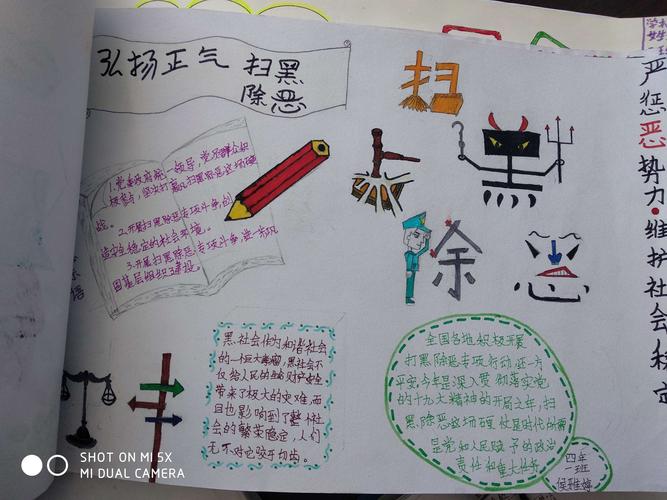 弘扬正气 扫黑
除恶
扫
黑
除
恶
严惩恶势力·维护社会稳定
1.党委政府统一领导,党员群众积
极参与,坚决打赢扫黑除恶这场硬
战。2.开展扫黑除恶专项斗争,创
造安全稳定的社会环境。
3.开展扫黑除恶专项斗争,进一步巩
固基层组织建设
标语
黑社会作为和谐社会
的一枚大毒瘤,黑社会不
仅给人民的生命财产安全
带来了极大的灾难,而
且也影响到了整个社
会的繁荣稳定,人们
无不对它咬牙切齿。
全国各地积极开展
打黑除恶专项行动,还一方
平安今年是深入贯彻落实党
的十九大精神的开局之年,扫
黑除恶这场硬仗是时代的需
是党和人民赋予的政治
责任和重大任务
四年
一班
侯雅婷
SHOT ON MI 5X
MI DUAL CAMERA